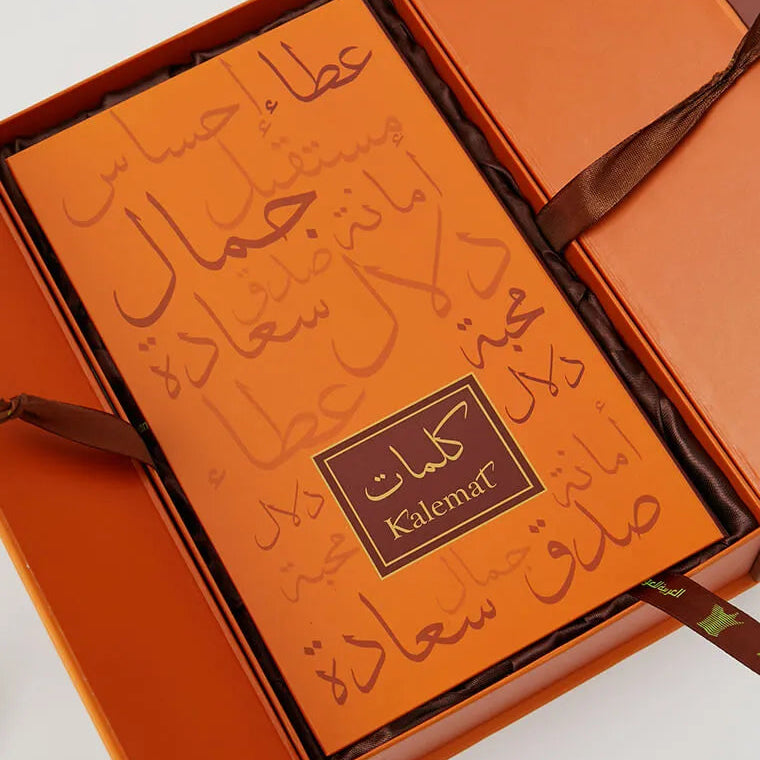 عطاء
إحساس
مستقبل
أمانة
جمال
صدق
دلال
سعادة
محبة
دلال
عطاء
كلمات
Kalemat
أمانة
دلال
صدق
محبة
جمال
سعادة
العربية